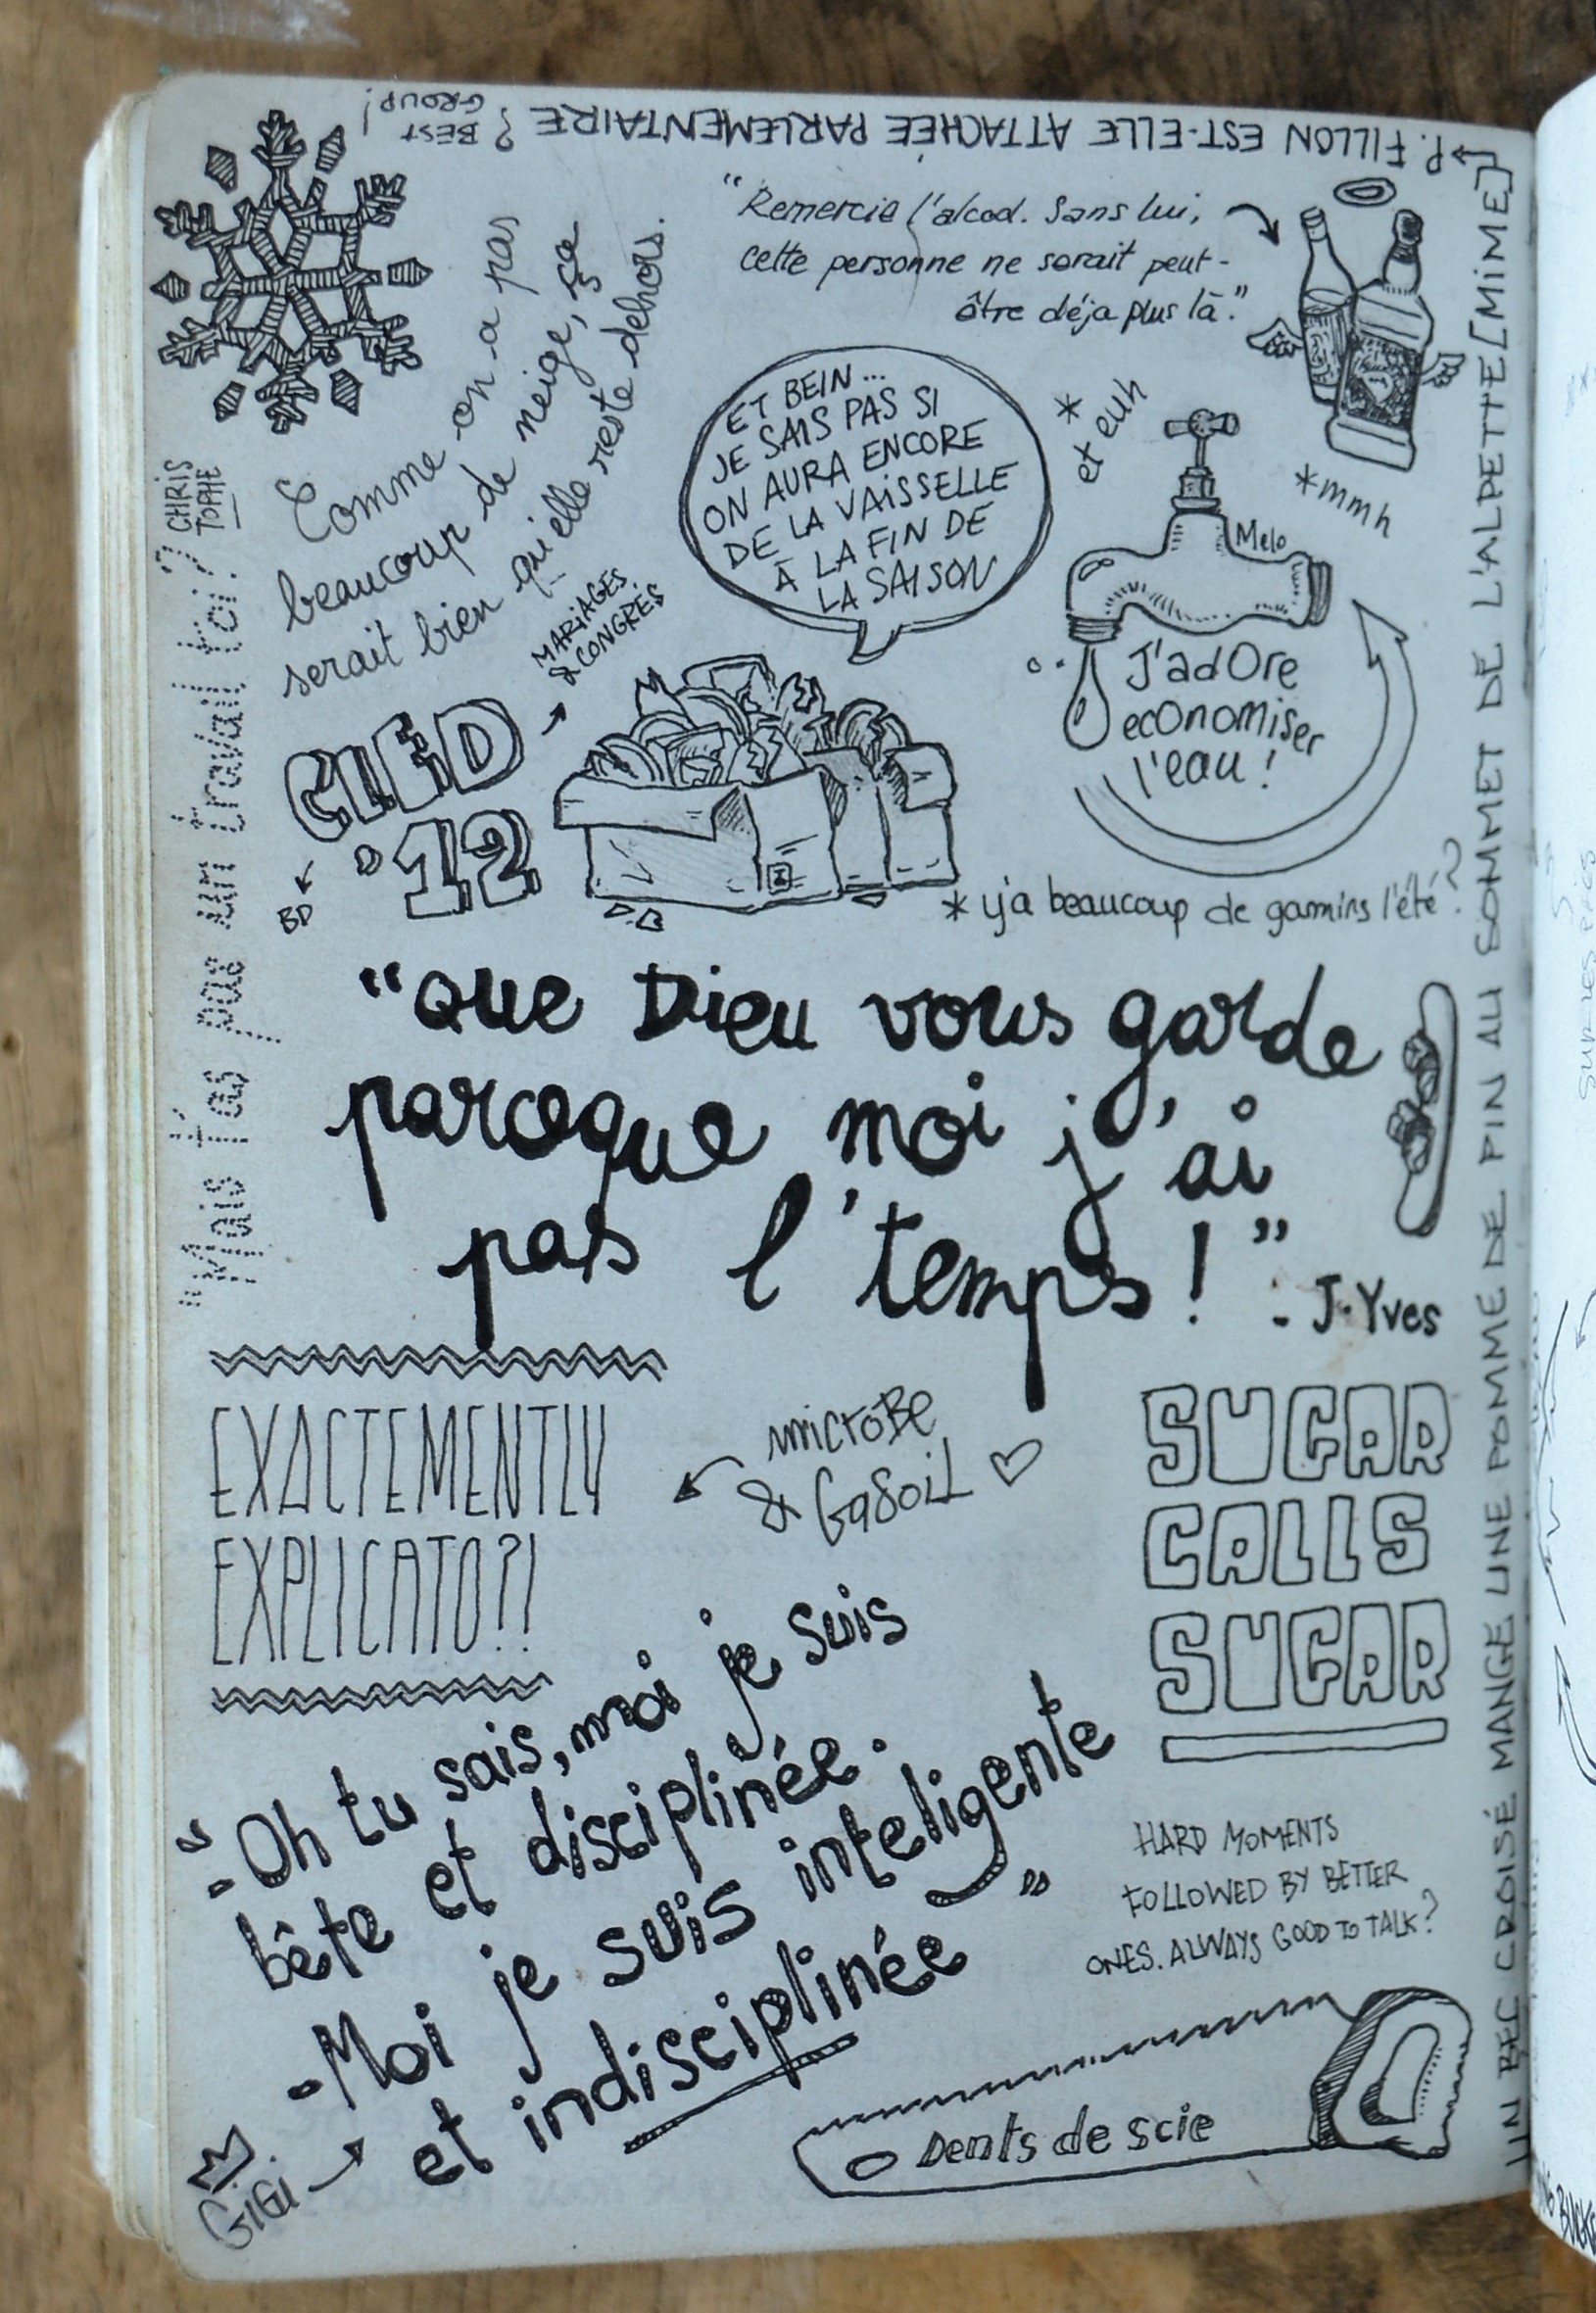 P. FILLON EST-ELLE ATTACHÉE PARLEMENTAIRE ?
BEST
GROUP!
"Remercie l'alcool. Sans lui,
cette personne ne serait peut-
être déja plus là."
Comme on a pas
beaucoup de neige, ça
serait bien qu'elle reste dehors.
CHRIS
TOPHE
"Mais t'as pas un travail toi?
ET BEIN...
JE SAIS PAS SI
ON AURA ENCORE
DE LA VAISSELLE
À LA FIN DE
LA SAISON
* et euh
*mmh
Melo
J'adOre
ecOnomiser
l'eau !
MARIAGES
& CONGRÈS
CLED
'12
BD
* y'a beaucoup de gamins l'été?
"que Dieu vous garde
parceque moi j'ai
pas l'temps!"
- J-Yves
EXACTEMENTLY
EXPLICATO?!
microBe
& GaSoiL
SUGAR
CALLS
SUGAR
"- Oh tu sais, moi je suis
bête et disciplinée.
- Moi je suis inteligente
et indisciplinée"
GiGi
HARD MOMENTS
FOLLOWED BY BETTER
ONES. ALWAYS GOOD TO TALK?
Dents de scie
UN BEC CROISÉ MANGE UNE POMME DE PIN AU SOMMET DE L'ALPETTE [MIME]